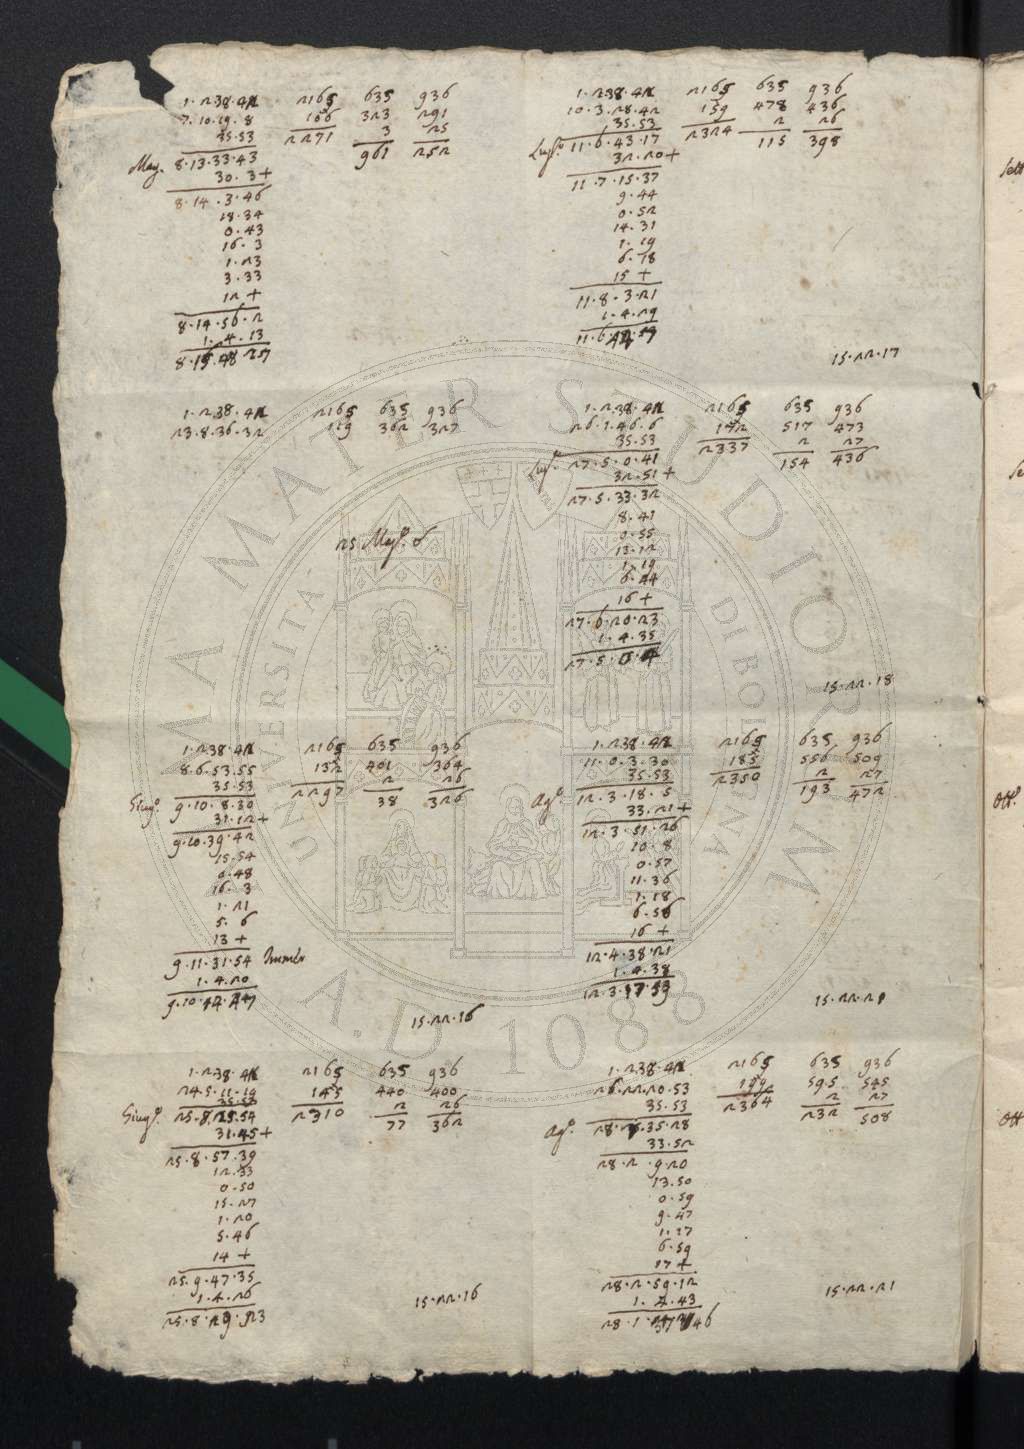 1. 238. 42 2165 635 936
7. 10. 19. 8 106 323 291
35. 53 2271 3 25
May. 8. 13. 33. 43 961 252
30. 3 +
8. 14. 3. 46
18. 34
0. 43
16. 3
1. 23
3. 33
12 +
8. 14. 56. 2
1. 4. 13
8. 15. 48 25
1. 238. 42 2165 635 936
10. 3. 28. 42 159 478 436
35. 53 2324 2 26
Lug.º 11. 6. 43. 17 115 398
32. 20 +
11. 7. 15. 37
9. 44
0. 52
14. 31
1. 19
6. 18
15 +
11. 8. 3. 21
1. 4. 29
11. 6
15. 22. 17
1. 238. 42 2165 635 936
23. 8. 36. 32 119 362 327
25 Mag.º
1. 238. 42 2165 635 936
26. 1. 46. 6 172 517 473
35. 53 2337 2 27
Lug.º 27. 5. 0. 41 154 436
32. 51 +
27. 5. 33. 32
8. 41
0. 55
13. 12
1. 19
6. 44
16 +
27. 6. 20. 23
1. 4. 35
27. 5.
15. 22. 18
1. 238. 42 2165 635 936
8. 6. 53. 55 132 401 364
35. 53 2297 2 26
Giug.º 9. 10. 8. 30 38 326
31. 12 +
9. 10. 39. 42
15. 54
0. 48
16. 3
1. 21
5. 6
13 +
9. 11. 31. 54
1. 4. 20
9. 10.
15. 22. 16
1. 238. 42 2165 635 936
11. 0. 3. 30 185 556 509
35. 53 2350 2 27
Ag.º 12. 3. 18. 5 193 472
33. 21 +
12. 3. 51. 26
10. 8
0. 57
11. 36
1. 18
6. 56
16 +
12. 4. 38. 21
1. 4. 38
12. 3. 59
15. 22. 21
1. 238. 42 2165 635 936
24. 5. 11. 19 145 440 400
35. 53 2310 2 26
Giug.º 25. 8. 25. 54 77 362
31. 45 +
25. 8. 57. 39
12. 33
0. 50
15. 27
1. 20
5. 46
14 +
25. 9. 47. 35
1. 4. 26
25. 8. 29. 23
15. 22. 16
1. 238. 42 2165 635 936
26. 22. 20. 53 199 595 545
35. 53 2364 2 27
Ag.º 28. 35. 28 232 508
33. 52
28. 2. 9. 20
13. 50
0. 59
9. 47
1. 17
6. 59
17 +
28. 2. 59. 12
1. 4. 43
28. 1. 46
15. 22. 21
Sett
Ott.º
Ott
ALMA MATER STUDIORUM
UNIVERSITÀ DI BOLOGNA
A.D. 1088